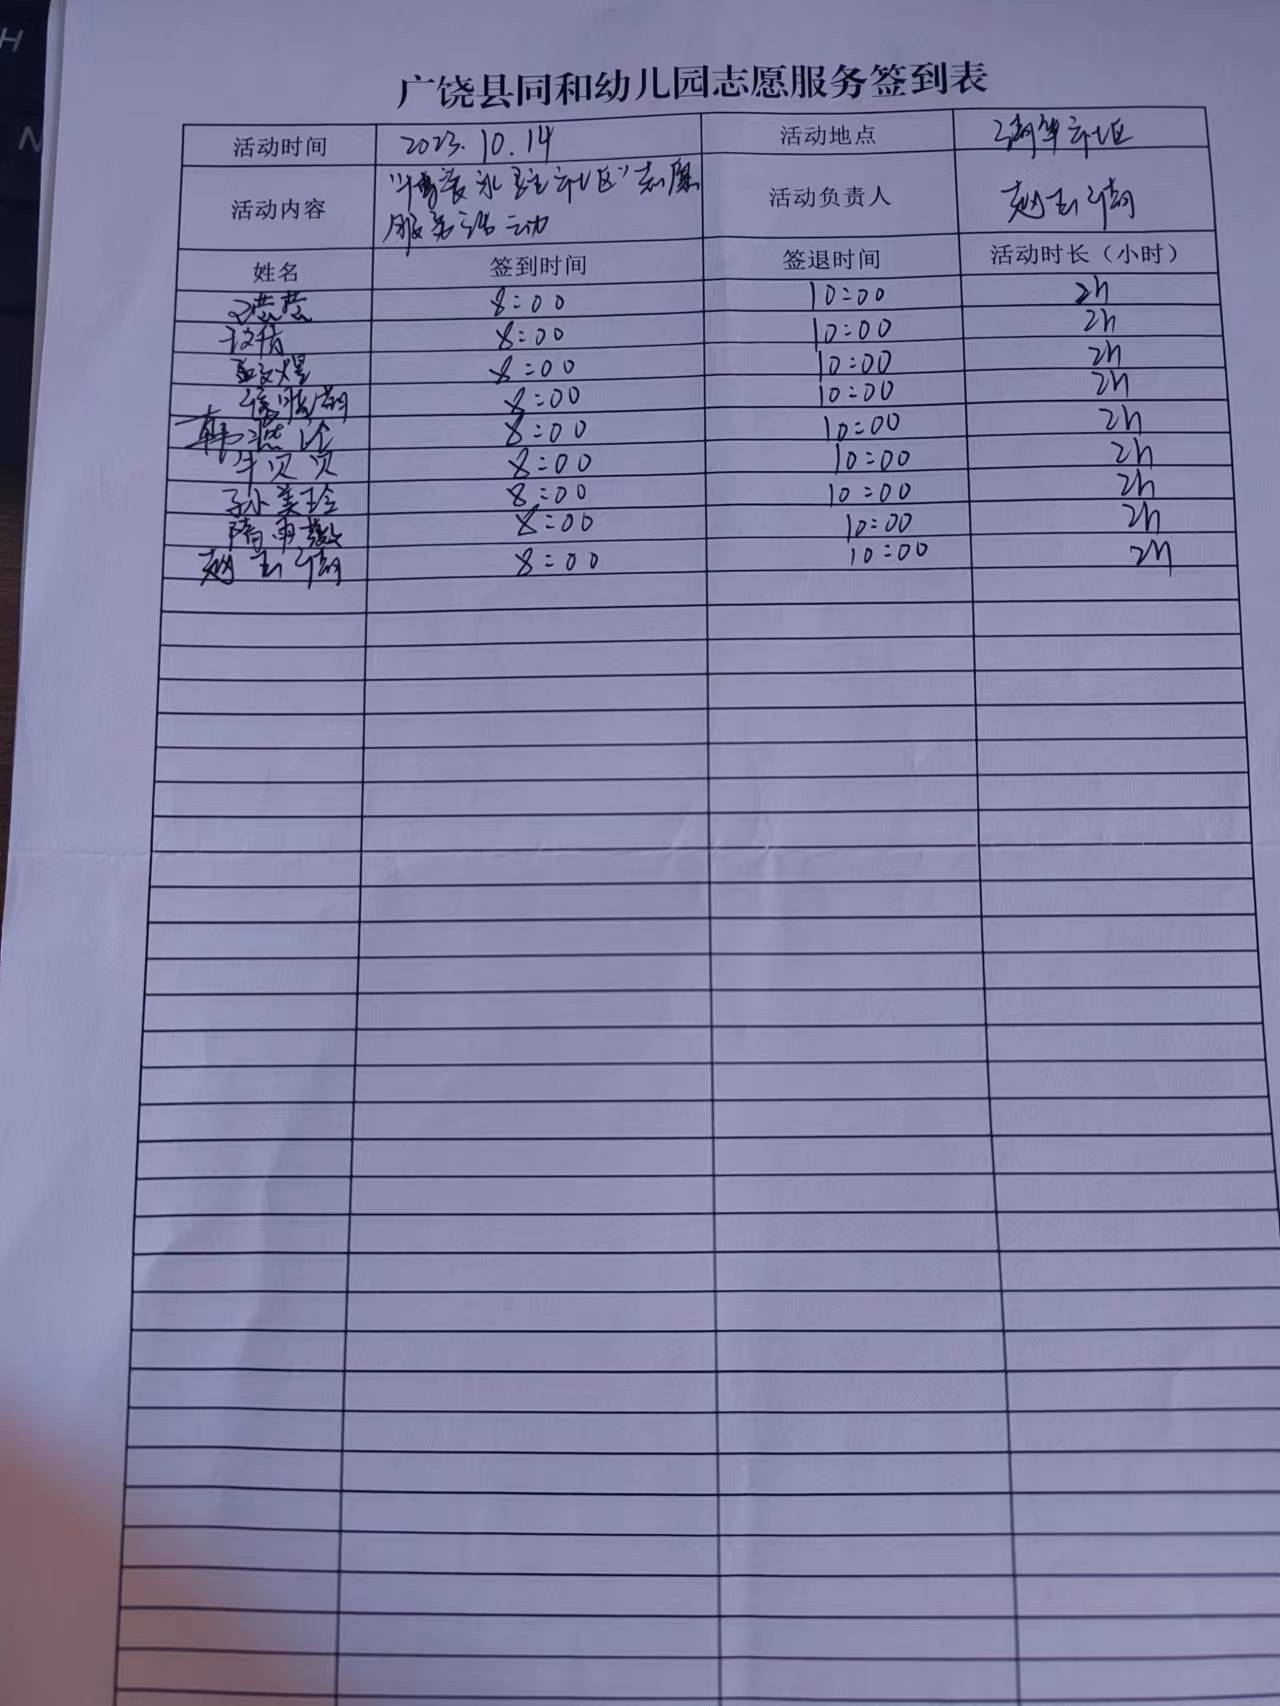 广饶县同和幼儿园志愿服务签到表
活动时间 2023.10.14 活动地点 清华社区
活动内容 社区"志愿
服务活动 活动负责人 赵玉倩
姓名 签到时间 签退时间 活动时长（小时）
8:00 10:00 2h
8:00 10:00 2h
孟文煜 8:00 10:00 2h
8:00 10:00 2h
韩 8:00 10:00 2h
牛贝贝 8:00 10:00 2h
孙美玲 8:00 10:00 2h
隋雨 8:00 10:00 2h
赵玉倩 8:00 10:00 2h